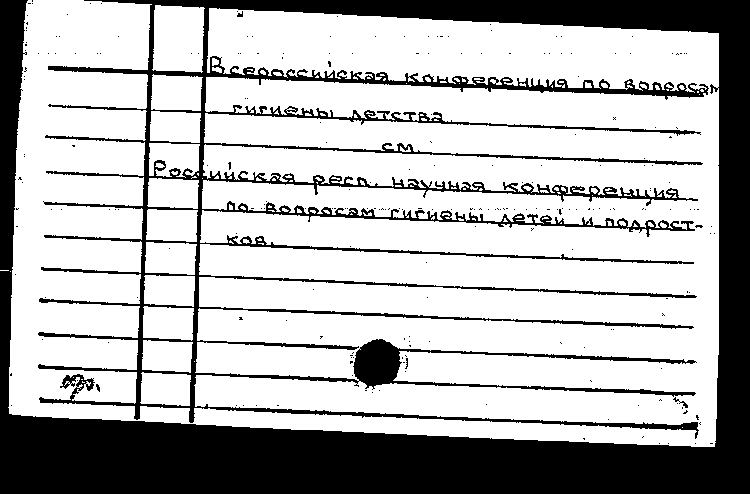 Всероссийская конференция по вопросам
гигиены детства
см.
Российская респ. научная конференция
по вопросам гигиены детей и подрост-
ков.